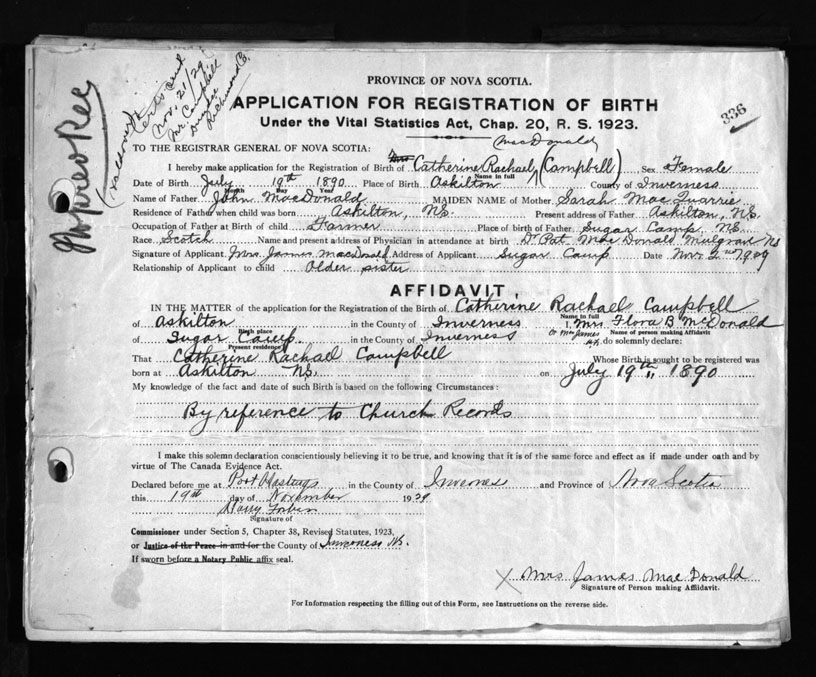 Nov. 21/29
Mr. Campbell
Richmond Co.
336
PROVINCE OF NOVA SCOTIA.
APPLICATION FOR REGISTRATION OF BIRTH
Under the Vital Statistics Act, Chap. 20, R. S. 1923.
MacDonald
TO THE REGISTRAR GENERAL OF NOVA SCOTIA:
I hereby make application for the Registration of Birth of Mrs Catherine Rachael (Campbell) Sex Female
Name in full
Date of Birth July 19th 1890 Place of Birth Askilton County of Inverness
Month Day Year
Name of Father John MacDonald MAIDEN NAME of Mother Sarah Mac Quarrie
Residence of Father when child was born Askilton, N.S. Present address of Father Askilton, N.S.
Occupation of Father at Birth of child Farmer Place of birth of Father Sugar Camp, N.S.
Race Scotch Name and present address of Physician in attendance at birth Dr Pat. Mac Donald Mulgrave N.S
Signature of Applicant Mrs James MacDonald Address of Applicant Sugar Camp Date Nov. 2nd
Relationship of Applicant to child Older sister
AFFIDAVIT
IN THE MATTER of the application for the Registration of the Birth of Catherine Rachael Campbell
Name in full
of Askilton in the County of Inverness I, Mrs Flora B McDonald
Birth place or Mrs James Name of person making Affidavit
of Sugar Camp in the County of Inverness do solemnly declare:
Present residence
That Catherine Rachael Campbell Whose Birth is sought to be registered was
born at Askilton N.S. on July 19th, 1890
My knowledge of the fact and date of such Birth is based on the following Circumstances:
By reference to Church Records
I make this solemn declaration conscientiously believing it to be true, and knowing that it is of the same force and effect as if made under oath and by
virtue of The Canada Evidence Act.
Declared before me at Port Hastings in the County of Inverness and Province of Nova Scotia
this 19th day of November 1929
Harry
Signature of
Commissioner under Section 5, Chapter 38, Revised Statutes, 1923,
or Justice of the Peace in and for the County of Inverness N.S.
If sworn before a Notary Public affix seal.
X Mrs James Mac Donald
Signature of Person making Affidavit.
For Information respecting the filling out of this Form, see Instructions on the reverse side.